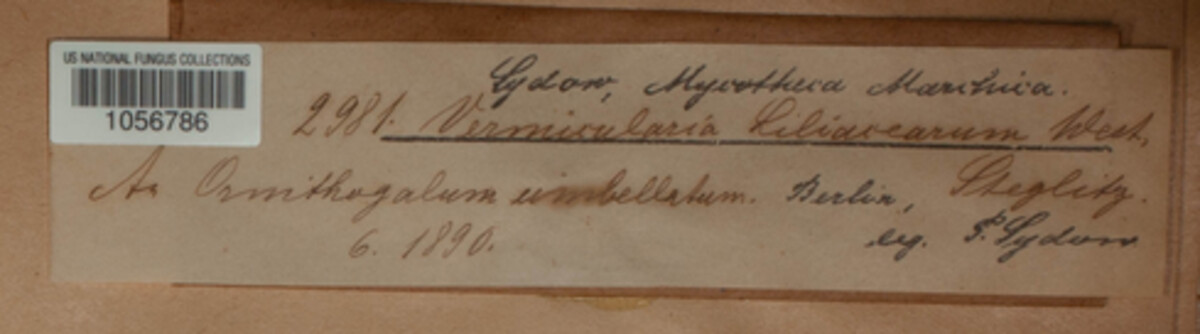 US NATIONAL FUNGUS COLLECTIONS
1056786
Sydow, Mycotheca Marchica.
2981. Vermicularia Liliacearum West.
An Ornithogalum umbellatum. Berlin, Steglitz.
6. 1890. leg. P. Sydow